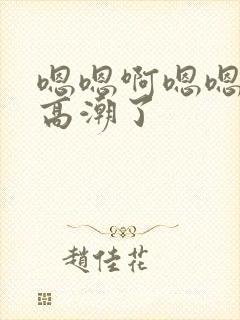 嗯嗯啊嗯嗯
高潮了
趙佳花